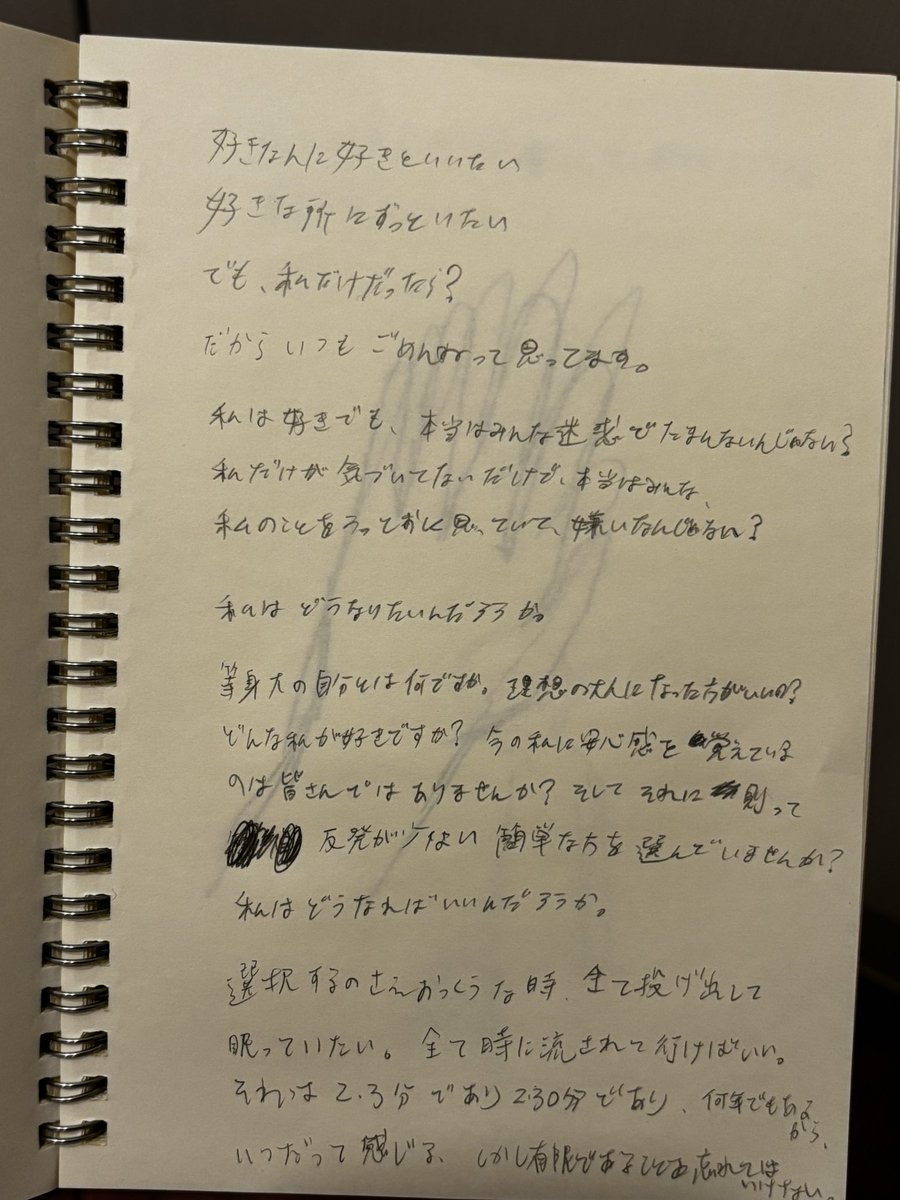 好きな人に好きといいたい
好きな所にずっといたい
でも、私だけだったら?
だからいつもごめんねって思ってます。
私は好きでも、本当はみんな迷惑でたまんないんじゃない?
私だけが気づいてないだけで、本当はみんな、
私のことをうっとおしく思っていて、嫌いなんじゃない?
私はどうなりたいんだろうか。
等身大の自分とは何ですか。理想の大人になった方がいいの?
どんな私が好きですか? 今の私に安心感を覚えている
のは皆さんではありませんか? そしてそれに則って
反発が少ない簡単な方を選んでいませんか?
私はどうなればいいんだろうか。
選択するのさえおっくうな時、全て投げ出して
眠っていたい。全て時に流されて行けばいい。
それは2.3分であり2.30分であり、何年でもある
から、
いつだって感じる、しかし有限であることを忘れては
いけない。